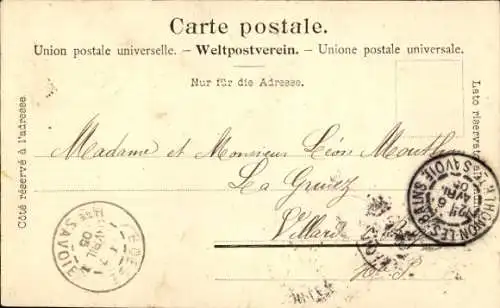 Carte postale.
Union postale universelle. — Weltpostverein. — Unione postale universale.
Nur für die Adresse.
Côté réservé à l'adresse.
Lato riservato
Madame et Monsieur Léon
La
Villard
H. S.
THONON-LES-BAINS
Hte SAVOIE
6
AVRIL
05
AVRIL
05
Hte SAVOIE